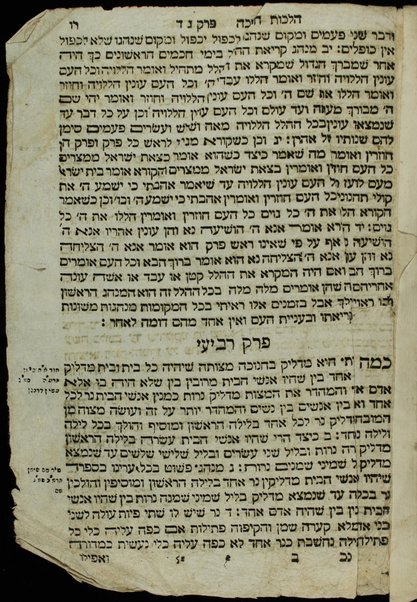 הלכות חנוכה פרק ג ד
ודבר שני פעמים ומקום שנהגו לכפול יכפול ומקום שנהגו שלא לכפול
אין כופלים: יב מנהג קריאת ההלל בימי חכמים הראשונים כך היה
אחר שמברך הגדול שמקרא את ההלל מתחיל ואומר הללויה וכל העם
עונין הללויה וחוזר ואומר הללו עבדי ה' וכל העם עונין הללויה וחוזר
ואומר הללו את שם ה' וכל העם עונין הללויה וחוזר ואומר יהי שם
ה' מבורך מעתה ועד עולם וכל העם עונין הללויה וכן על כל דבר עד
שנמצאו עונין בכל ההלל הללויה מאה ושלש ועשרים פעמים סימן
להם שנותיו של אהרן: יג וכן כשהקורא מגיע לראש כל פרק ופרק הן
חוזרין ואומרין מה שאמר כיצד כשהוא אומר בצאת ישראל ממצרים
כל העם חוזרין ואומרין בצאת ישראל ממצרים והקורא אומר בית יעקב
מעם לועז וכל העם עונין הללויה עד שיאמר אהבתי כי ישמע ה' את
קולי תחנוני וכל העם חוזרין ואומרין אהבתי כי ישמע ה' וכו' וכן כשאמר
הקורא הללו את ה' כל גוים כל העם חוזרין ואומרין הללו את ה' כל
גוים: יד הקורא אומר אנא ה' הושיעה נא והן עונין אחריו אנא ה'
הושיעה נא אף על פי שאינו ראש פרק הוא אומר אנא ה' הצליחה
נא והן עונין אנא ה' הצליחה נא הוא אומר ברוך הבא וכל העם אומרים
ברוך הבא ואם היה המקרא את ההלל קטן או עבד או אשה עונה
אחריהם מה שהן אומרים מלה מלה בכל ההלל זה הוא המנהג הראשון
ובו ראוי לילך אבל בזמנים אלו ראיתי בכל המקומות מנהגות משונות
בקריאתו ובעניית העם ואין אחד מהם דומה לאחר:
פרק רביעי
כמה נרות היא מדליק בחנוכה מצותה שיהיה כל בית ובית מדליק
אחד בין שהיו אנשי הבית מרובין בין שלא היה בו אלא
אדם אחד והמהדר את המצות מדליק נרות כמנין אנשי הבית נר לכל
אחד ואחד בין אנשים בין נשים והמהדר יותר על זה ועושה מצוה מן
המובחר מדליק נר לכל אחד בלילה הראשון ומוסיף והולך בכל לילה
ולילה נר אחד: ב כיצד הרי שהיו אנשי הבית עשרה בלילה הראשון
מדליק י' נרות ובליל שני עשרים ובליל שלישי שלשים עד שנמצא
מדליק בליל שמיני שמנים נרות: ג מנהג פשוט בכל ערינו בספרד
שיהיו אנשי הבית מדליקין נר אחד בלילה הראשון ומוסיפין והולכין
נר בכל לילה עד שנמצא מדליק בליל שמיני שמנה נרות בין שהיו אנשי
הבית מרובין בין שהיה אדם אחד: ד נר שיש לו שתי פיות עולה לשני
בני אדם מלא קערה שמן והקיפה פתילות אם כפה עליה כלי כל
פתילה ופתילה נחשבת כנר אחד לא כפה עליה כלי נעשית כמדורה
ואפילו